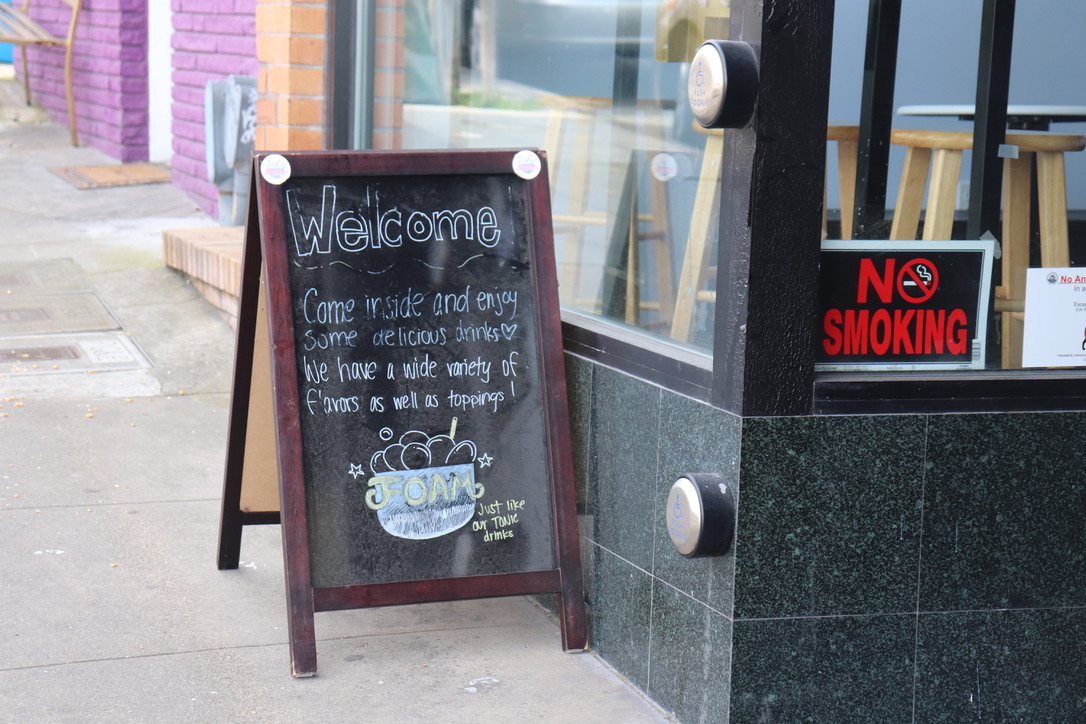 Welcome
Come inside and enjoy
some delicious drinks♡
We have a wide variety of
flavors as well as toppings!
FOAM
Just like
our TONIC
drinks
NO
SMOKING
No An
In a